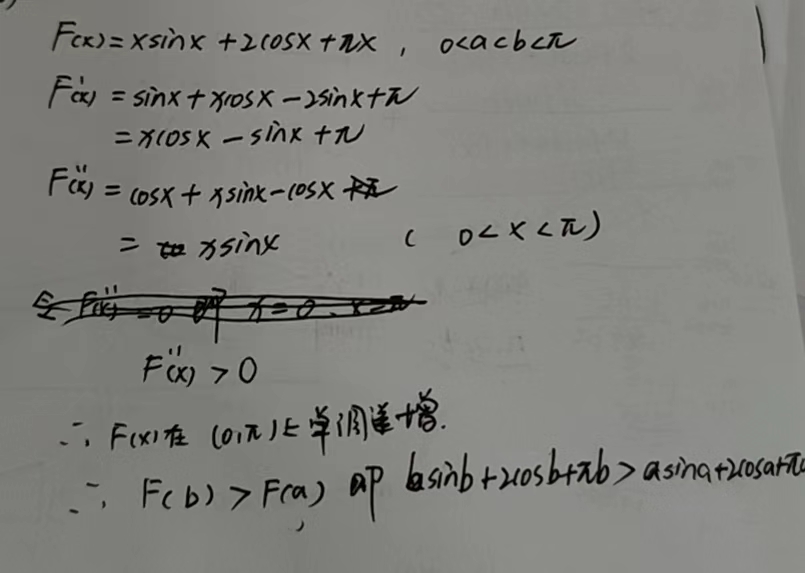 F(x) = xsinx + 2cosx + πx , 0<a<b<π
F'(x) = sinx + xcosx - 2sinx + π
= xcosx - sinx + π
F''(x) = cosx + xsinx - cosx
= xsinx ( 0 < x < π )
F''(x) > 0
∴ F(x)在 (0,π)上单调递增.
∴ F(b) > F(a) 即 bsinb + 2cosb + πb > asina + 2cosa + π